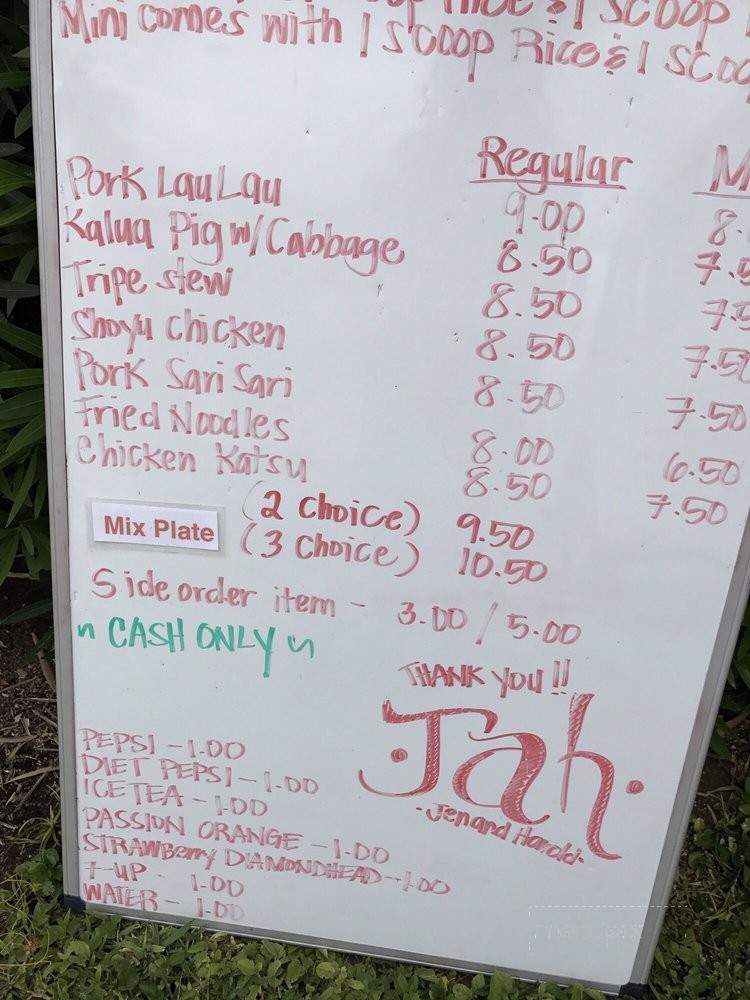 Rice & 1 SCOOP
Mini comes with 1 SCOOP Rice & 1 SCOO
Regular M
Pork LauLau 9.00 8.
Kalua Pig w/Cabbage 8.50 7.5
Tripe stew 8.50 7.5
Shoyu chicken 8.50 7.50
Pork Sari Sari 8.50 7.50
Fried Noodles 8.00 6.50
Chicken Katsu 8.50 7.50
Mix Plate (2 Choice) 9.50
(3 Choice) 10.50
Side order item - 3.00 / 5.00
~ CASH ONLY ~
THANK YOU!!
Jah
-Jen and Harold-
PEPSI - 1.00
DIET PEPSI - 1.00
ICE TEA - 1.00
PASSION ORANGE - 1.00
STRAWBERRY DIAMONDHEAD - 1.00
7-UP - 1.00
WATER - 1.00